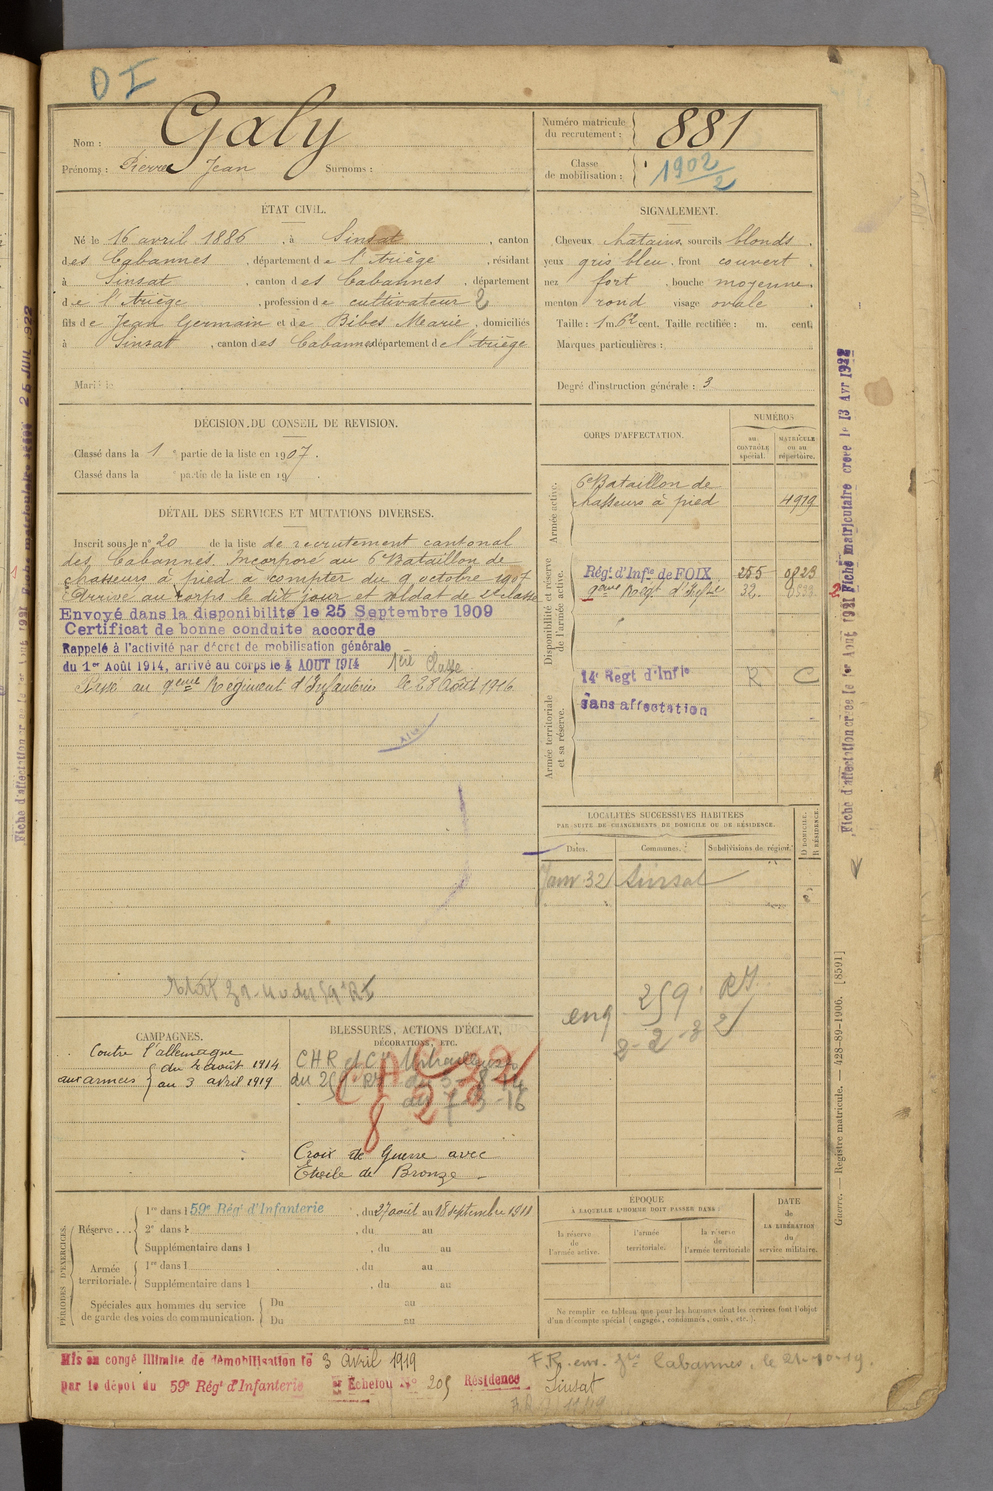 D I
Nom : Galy
Prénoms : Pierre Jean Surnoms :
Numéro matricule
du recrutement : 881
Classe
de mobilisation : 1902/2
ÉTAT CIVIL.
Né le 16 avril 1886, à Sinsat, canton
des Cabannes, département de l'Ariège, résidant
à Sinsat, canton des Cabannes, département
de l'Ariège, profession de cultivateur 2
fils de Jean Germain et de Bibes Marie, domiciliés
à Sinsat, canton des Cabannes département de l'Ariège
Marié le
SIGNALEMENT.
Cheveux chatains, sourcils blonds,
yeux gris bleu, front couvert,
nez fort, bouche moyenne,
menton rond visage ovale.
Taille : 1 m. 62 cent. Taille rectifiée : m. cent.
Marques particulières :
Degré d'instruction générale : 3
DÉCISION DU CONSEIL DE REVISION.
Classé dans la 1 e partie de la liste en 1907.
Classé dans la e partie de la liste en 19 .
DÉTAIL DES SERVICES ET MUTATIONS DIVERSES.
Inscrit sous le n° 20 de la liste de recrutement cantonal
des Cabannes. Incorporé au 6e Bataillon de
chasseurs à pied à compter du 9 octobre 1907
Arrivé au corps le dit jour et soldat de 2e classe
Envoyé dans la disponibilité le 25 Septembre 1909
Certificat de bonne conduite accordé
Rappelé à l'activité par décret de mobilisation générale
du 1er Août 1914, arrivé au corps le 4 AOUT 1914 1ère Classe
Passé au 9ème Régiment d'Infanterie le 28 Août 1916
CORPS D'AFFECTATION.
NUMÉROS
au
CONTRÔLE
spécial.
MATRICULE
ou au
répertoire.
Armée active.
6e Bataillon de
chasseurs à pied 4919
Disponibilité et réserve
de l'armée active.
Rég. d'Infie de FOIX 255 0823
9ème Régt d'Infie 32.
Armée territoriale
et sa réserve.
14e Regt d'Infie R C
Sans affectation
LOCALITÉS SUCCESSIVES HABITÉES
PAR SUITE DE CHANGEMENTS DE DOMICILE OU DE RÉSIDENCE.
Dates. Communes. Subdivisions de région.
D DOMICILE.
R RÉSIDENCE.
Janv 32 Sinsat
259 RI
CAMPAGNES.
Contre l'allemagne
aux armées du 4 août 1914
au 3 avril 1919
BLESSURES, ACTIONS D'ÉCLAT,
DÉCORATIONS, ETC.
CHR et Cie Mitrailleuses
du 259 RI du 5-8-14
au 7-3-16
Croix de Guerre avec
Etoile de Bronze
PÉRIODES D'EXERCICES.
Réserve... 1re dans l 59e Rég. d'Infanterie, du 27 août au 18 septembre 1911
2e dans l , du au
Supplémentaire dans l , du au
Armée
territoriale. 1re dans l , du au
Supplémentaire dans l , du au
Spéciales aux hommes du service
de garde des voies de communication. Du au
Du au
ÉPOQUE
À LAQUELLE L'HOMME DOIT PASSER DANS :
la réserve
de
l'armée active.
l'armée
territoriale.
la réserve
de
l'armée territoriale
DATE
de
LA LIBÉRATION
du
service militaire.
Ne remplir ce tableau que pour les hommes dont les services font l'objet
d'un décompte spécial (engagés, condamnés, omis, etc.).
Mis en congé illimité de démobilisation le 3 avril 1919
par le dépot du 59e Régt d'Infanterie Echelon No 205 Résidence Sinsat
Cabannes, le 21-10-19.
Guerre. — Registre matricule. — 428-89-1906. [8591]
Fiche d'affectation créée le 1er Aout 1921 Fiche matriculaire créée le 13 Avr 1922